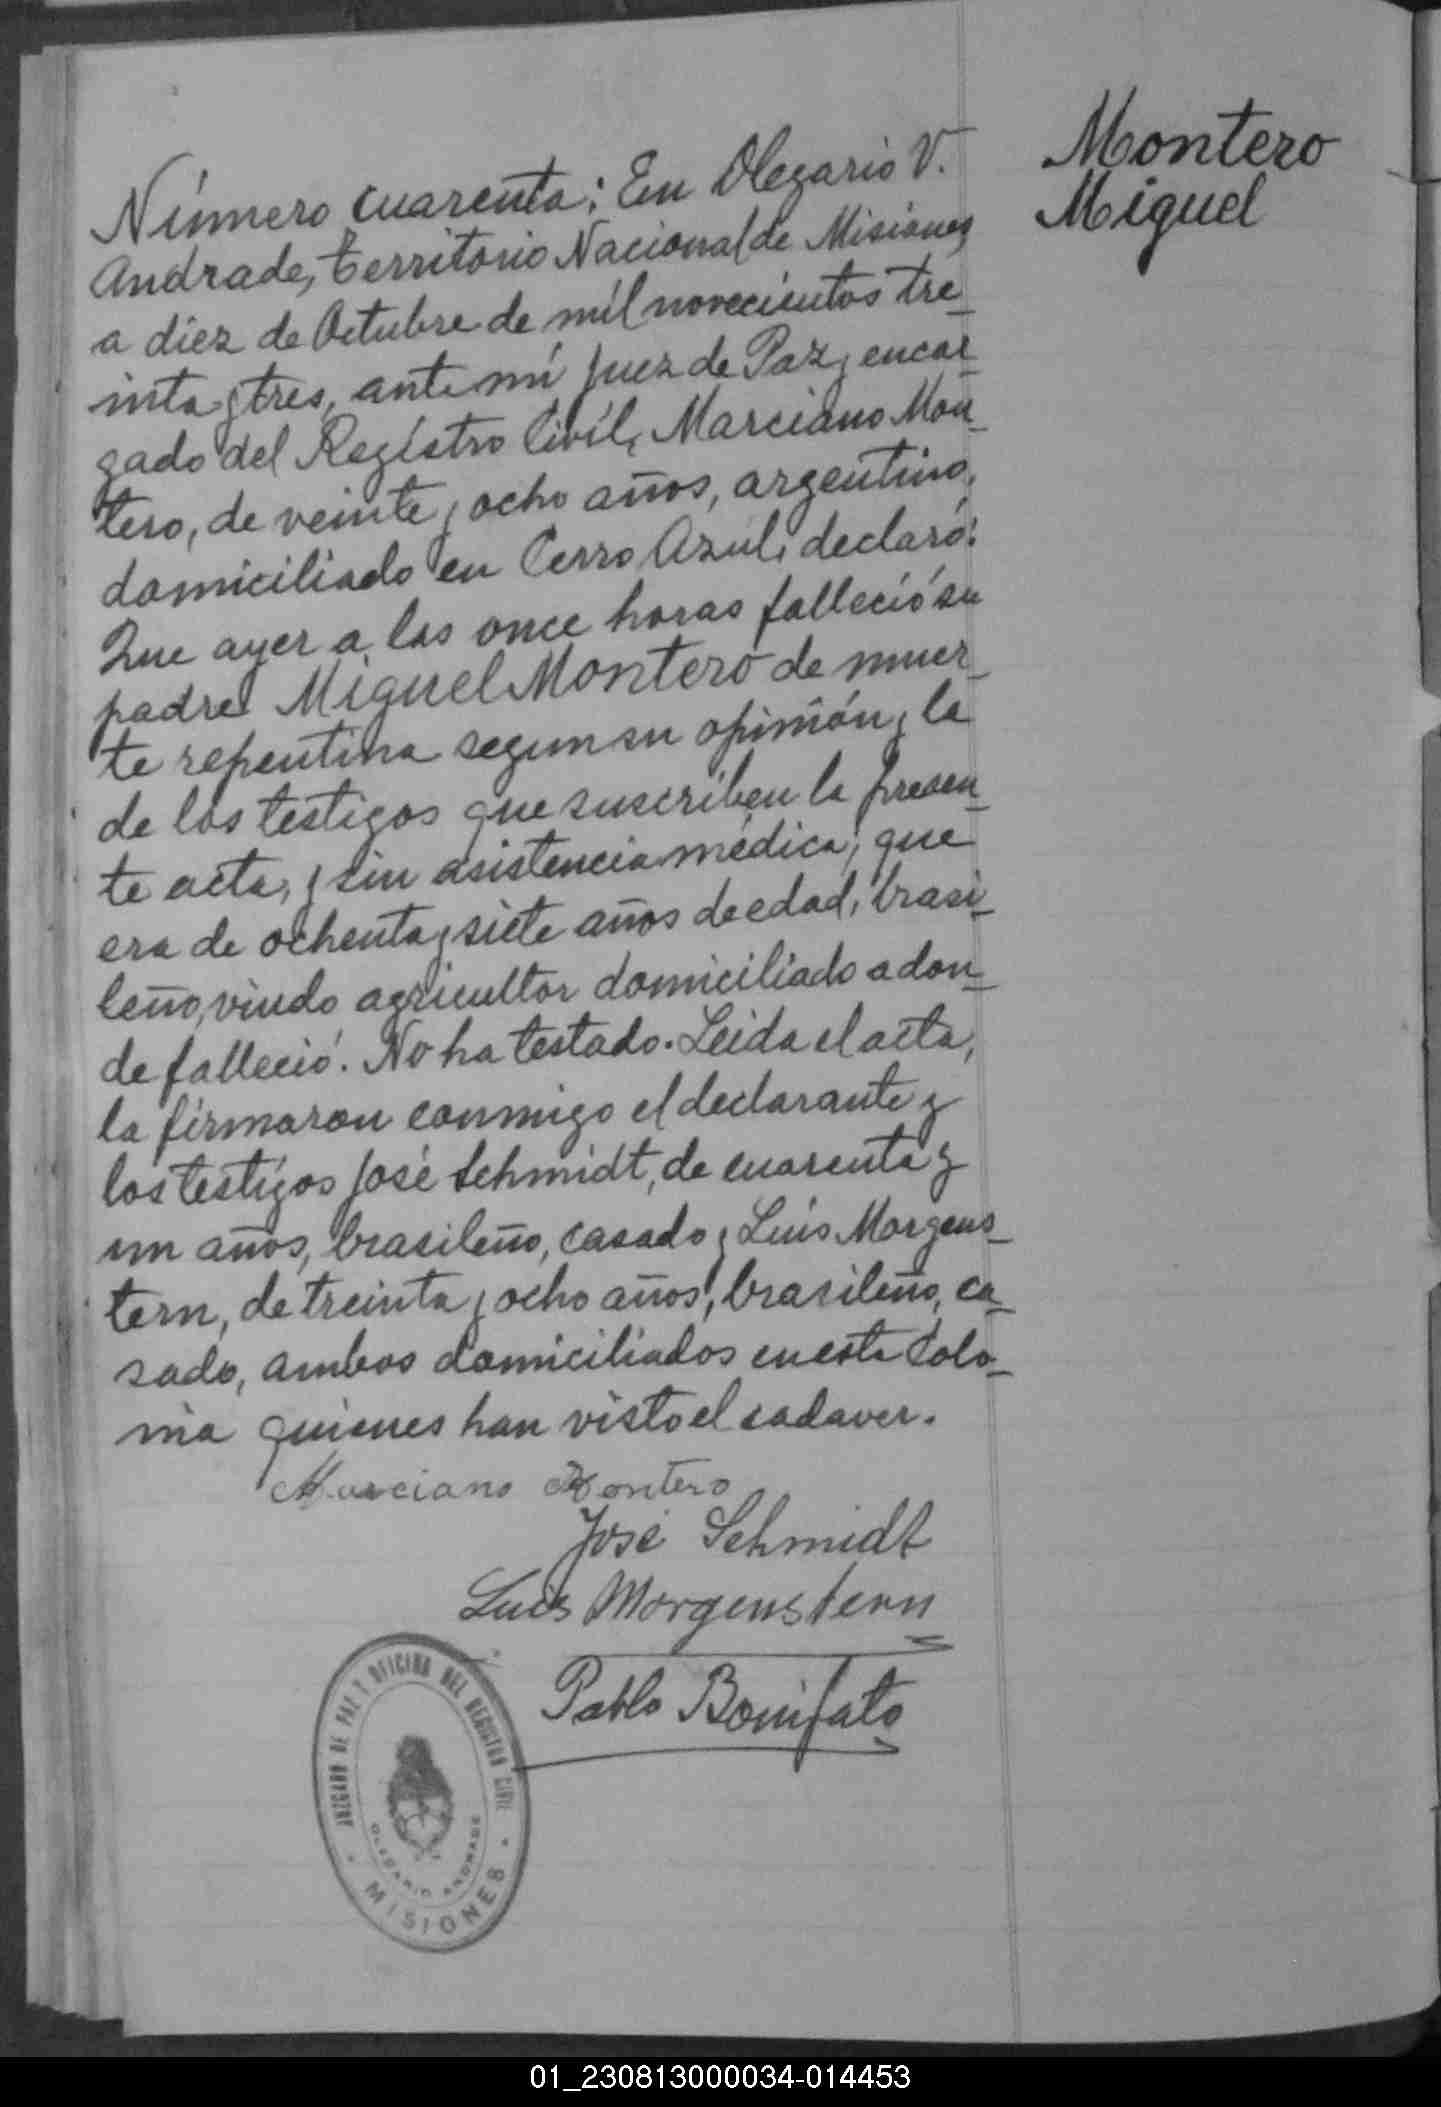 Montero
Miguel
Número cuarenta: En Olegario V.
Andrade, territorio Nacional de Misiones
a diez de Octubre de mil novecientos tre_
inta y tres, ante mí Juez de Paz y encar_
gado del Registro Civil, Marciano Mon_
tero, de veinte y ocho años, argentino,
domiciliado en Cerro Azul, declaró:
Que ayer a las once horas falleció su
padre Miguel Montero de muer_
te repentina segun su opinión y la
de los testigos que suscriben la presen_
te acta, y sin asistencia médica; que
era de ochenta y siete años de edad, brasi_
leño, viudo agricultor domiciliado a don_
de falleció. No ha testado. Leida el acta,
la firmaron conmigo el declarante y
los testigos José Schmidt, de cuarenta y
un años, brasileño, casado y Luis Morgens_
tern, de treinta y ocho años, brasileño, ca_
sado, ambos domiciliados en esta Colo_
nia quienes han visto el cadaver.
Marciano Montero
José Schmidt
Luis Morgenstern
Pablo Bonifato
JUZGADO DE PAZ Y OFICINA DEL REGISTRO CIVIL
OLEGARIO ANDRADE
MISIONES
01_230813000034-014453